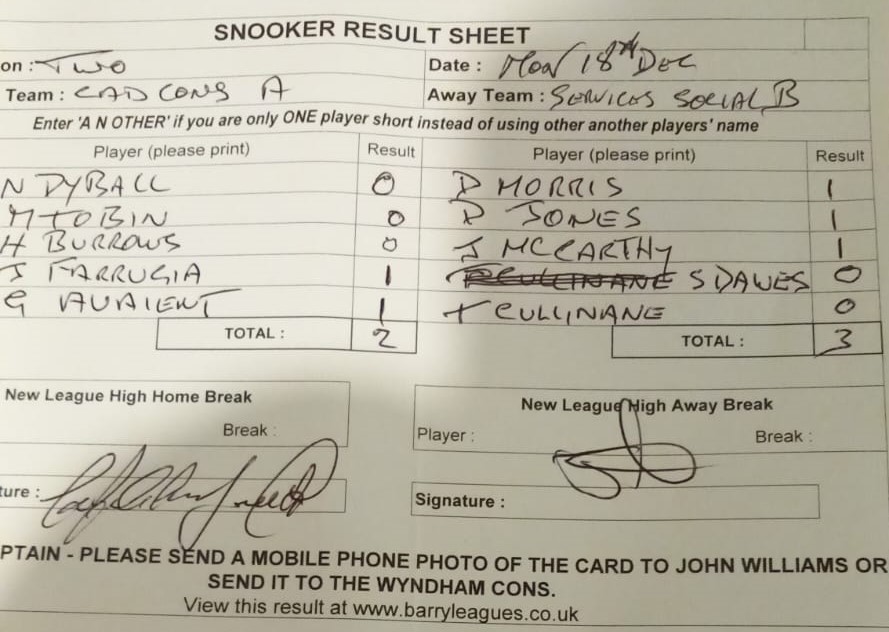 SNOOKER RESULT SHEET
on : TWO Date : MON 18th DEC
Team : CAD CONS A Away Team : SERVICES SOCIAL B
Enter 'A N OTHER' if you are only ONE player short instead of using other another players' name
Player (please print) Result Player (please print) Result
N DYBALL 0 D MORRIS 1
M TOBIN 0 P JONES 1
H BURROWS 0 J MCCARTHY 1
J FARRUGIA 1 S DAWES 0
G 1 T CULLINANE 0
TOTAL : 2 TOTAL : 3
New League High Home Break New League High Away Break
Break : Player : Break :
ture : Signature :
PTAIN - PLEASE SEND A MOBILE PHONE PHOTO OF THE CARD TO JOHN WILLIAMS OR
SEND IT TO THE WYNDHAM CONS.
View this result at www.barryleagues.co.uk